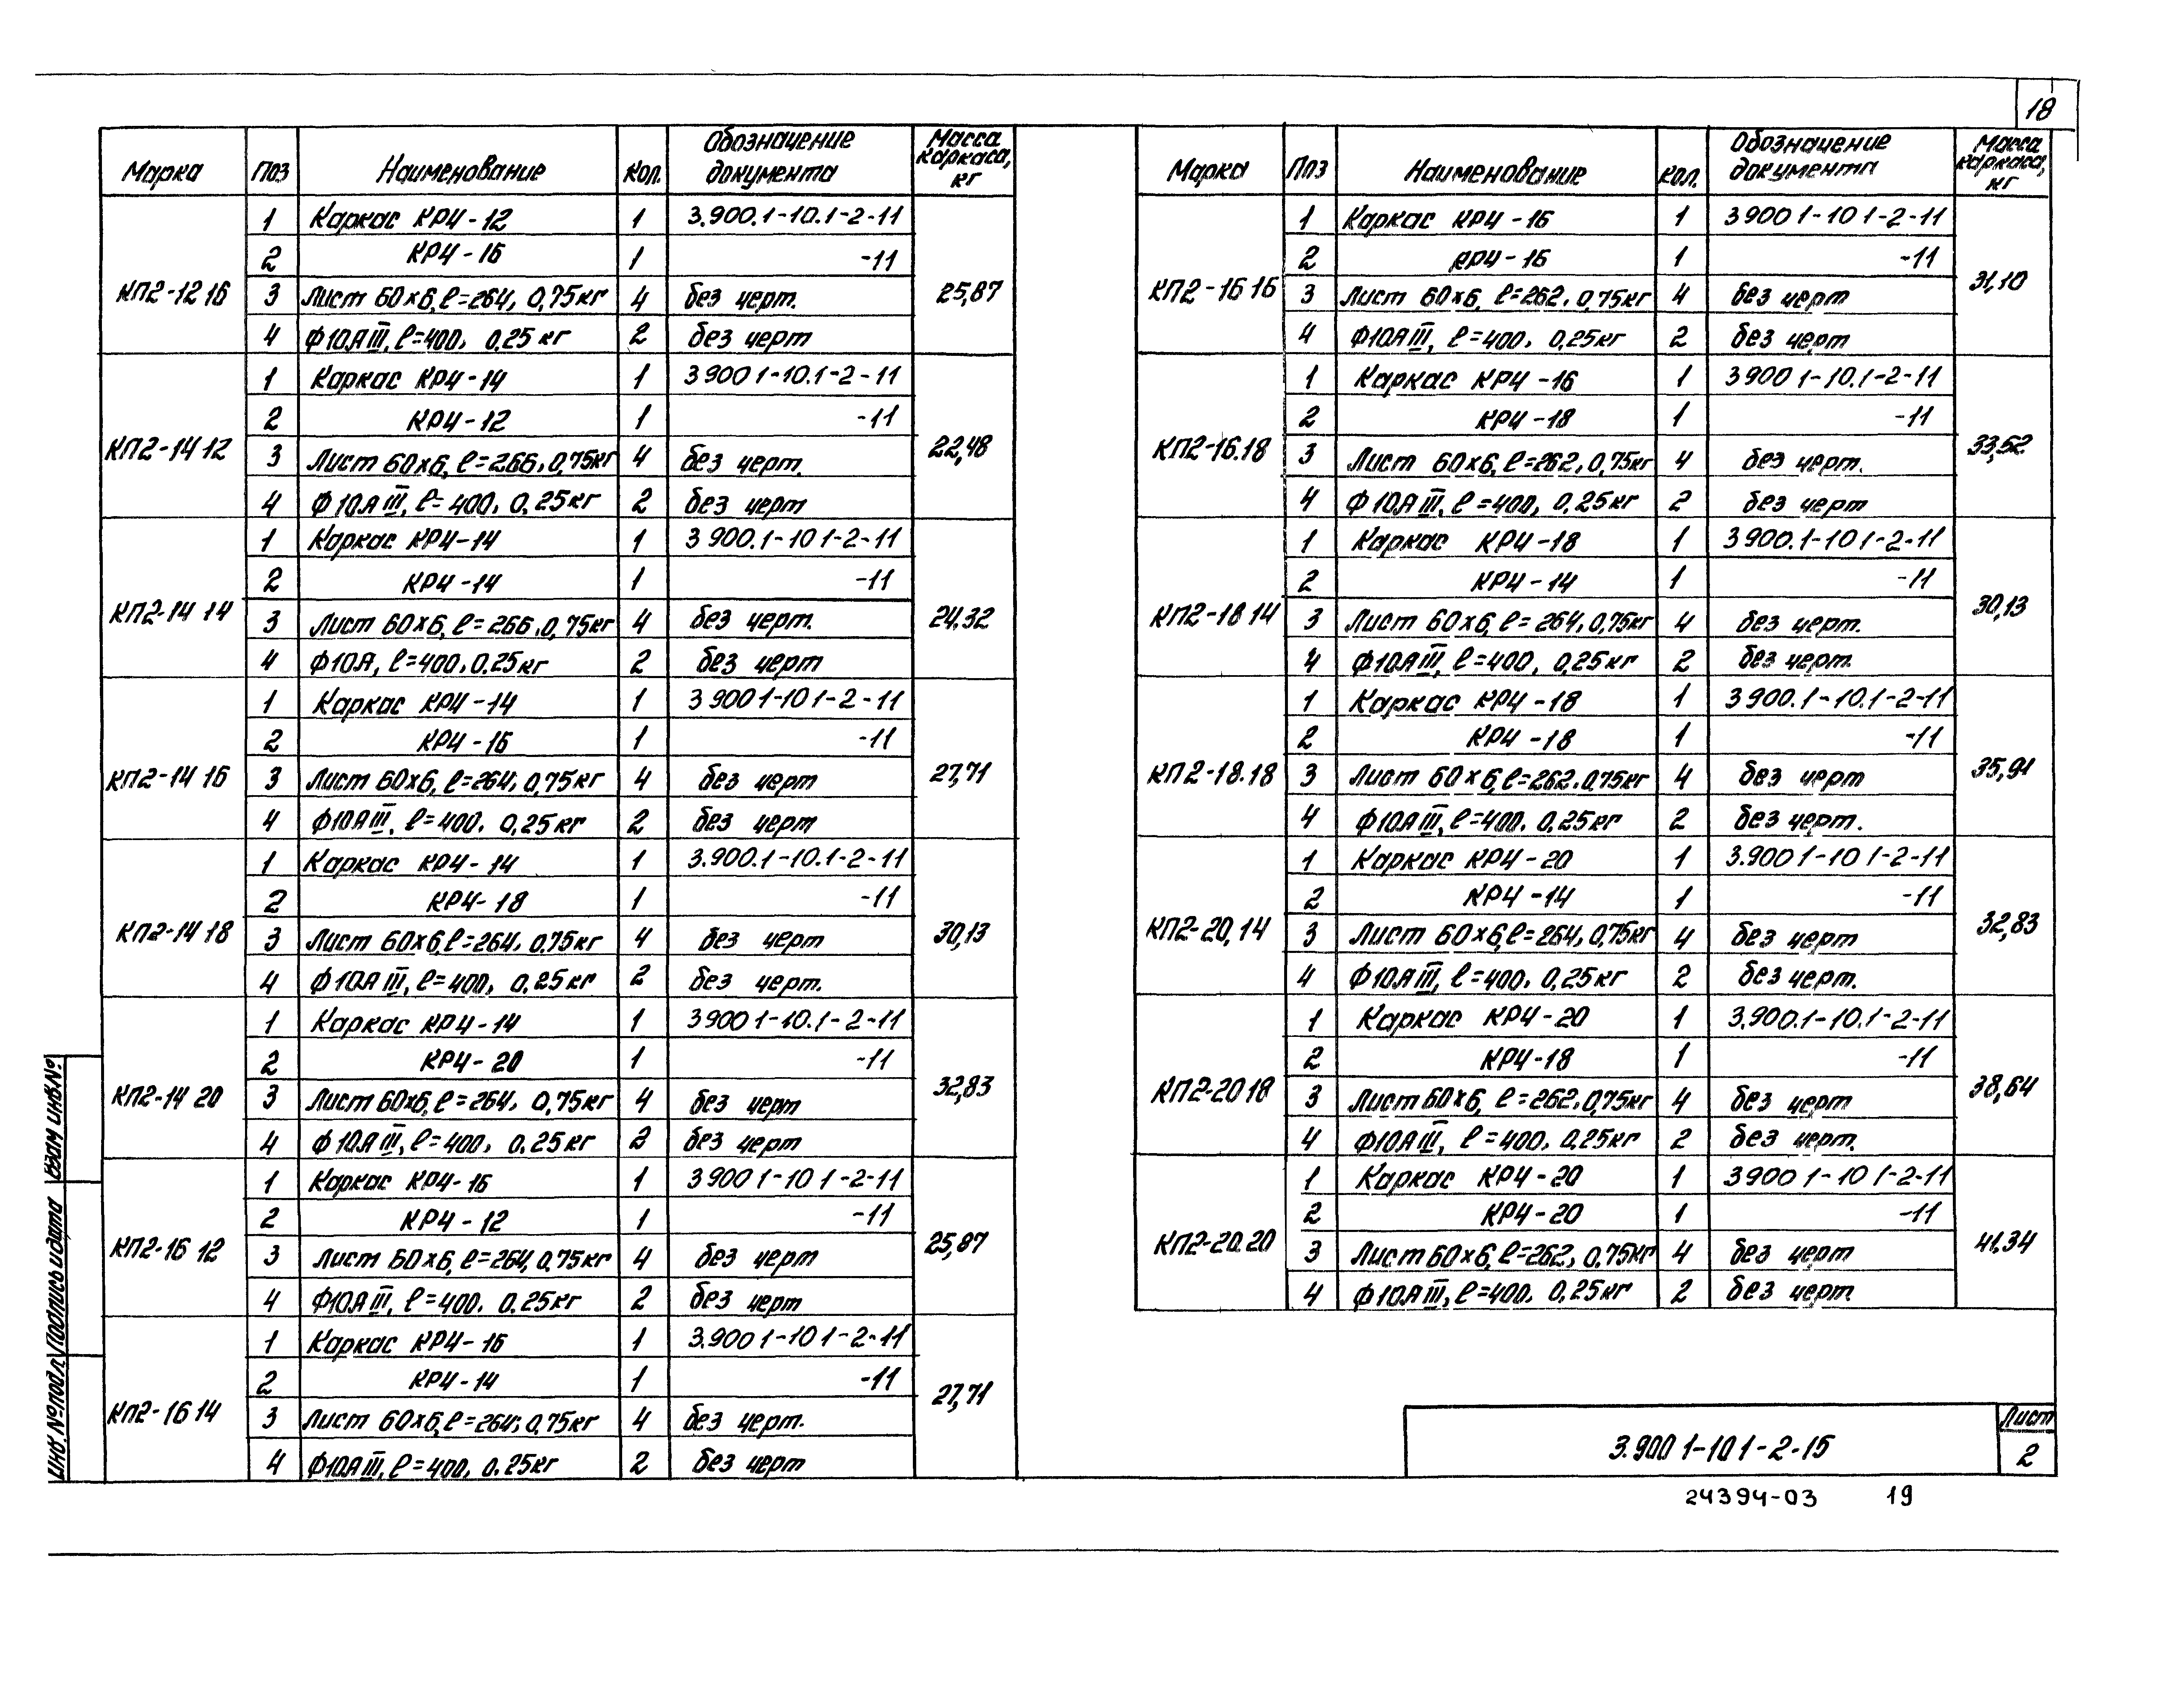 18
Марка Поз Наименование Кол. Обозначение документа Масса каркаса, кг
КП2-12 16 25,87
1 Каркас КР4-12 1 3.900.1-10.1-2-11
2 КР4-16 1 -11
3 Лист 60х6, ℓ=264, 0,75кг 4 без черт.
4 Ф10АIII, ℓ=400, 0.25 кг 2 без черт
КП2-14 12 22,48
1 Каркас КР4-14 1 3 900 1-10.1-2-11
2 КР4-12 1 -11
3 Лист 60х6, ℓ=266, 0,75кг 4 без черт.
4 Ф10АIII, ℓ=400, 0,25кг 2 без черт
КП2-14 14 24,32
1 Каркас КР4-14 1 3 900.1-10 1-2-11
2 КР4-14 1 -11
3 Лист 60х6, ℓ=266, 0,75кг 4 без черт.
4 Ф10А, ℓ=400, 0.25кг 2 без черт
КП2-14 16 27,71
1 Каркас КР4-14 1 3 900 1-10 1-2-11
2 КР4-16 1 -11
3 Лист 60х6, ℓ=264, 0,75кг 4 без черт
4 Ф10АIII, ℓ=400, 0,25кг 2 без черт
КП2-14 18 30,13
1 Каркас КР4-14 1 3.900.1-10.1-2-11
2 КР4-18 1 -11
3 Лист 60х6, ℓ=264, 0.75кг 4 без черт
4 Ф10АIII, ℓ=400, 0.25кг 2 без черт.
КП2-14 20 32,83
1 Каркас КР4-14 1 3 900 1-10.1-2-11
2 КР4-20 1 -11
3 Лист 60х6, ℓ=264, 0,75кг 4 без черт
4 Ф10АIII, ℓ=400, 0.25кг 2 без черт
КП2-16 12 25,87
1 Каркас КР4-16 1 3 900 1-10 1-2-11
2 КР4-12 1 -11
3 Лист 60х6, ℓ=264, 0,75кг 4 без черт
4 Ф10АIII, ℓ=400, 0.25кг 2 без черт
КП2-16 14 27,71
1 Каркас КР4-16 1 3.900 1-10 1-2-11
2 КР4-14 1 -11
3 Лист 60х6, ℓ=264, 0,75кг 4 без черт.
4 Ф10АIII, ℓ=400, 0.25кг 2 без черт
Марка Поз Наименование кол. Обозначение документа Масса каркаса, кг
КП2-16 16 31,10
1 Каркас КР4-16 1 3 900 1-10 1-2-11
2 КР4-16 1 -11
3 Лист 60х6, ℓ=262, 0,75кг 4 без черт
4 Ф10АIII, ℓ=400, 0,25кг 2 без черт
КП2-16.18 33,52
1 Каркас КР4-16 1 3 900 1-10.1-2-11
2 КР4-18 1 -11
3 Лист 60х6, ℓ=262, 0,75кг 4 без черт.
4 Ф10АIII, ℓ=400, 0,25кг 2 без черт
КП2-18 14 30,13
1 Каркас КР4-18 1 3 900.1-10 1-2-11
2 КР4-14 1 -11
3 Лист 60х6, ℓ=264, 0,75кг 4 без черт.
4 Ф10АIII, ℓ=400, 0,25кг 2 без черт.
КП2-18.18 35,91
1 Каркас КР4-18 1 3 900.1-10.1-2-11
2 КР4-18 1 -11
3 Лист 60х6, ℓ=262. 0,75кг 4 без черт
4 Ф10АIII, ℓ=400. 0.25кг 2 без черт.
КП2-20,14 32,83
1 Каркас КР4-20 1 3.900 1-10 1-2-11
2 КР4-14 1 -11
3 Лист 60х6, ℓ=264, 0,75кг 4 без черт
4 Ф10АIII, ℓ=400, 0,25кг 2 без черт.
КП2-20 18 38,64
1 Каркас КР4-20 1 3.900.1-10.1-2-11
2 КР4-18 1 -11
3 Лист 60х6, ℓ=262, 0,75кг 4 без черт
4 Ф10АIII, ℓ=400, 0,25кг 2 без черт.
КП2-20.20 41,34
1 Каркас КР4-20 1 3 900 1-10 1-2-11
2 КР4-20 1 -11
3 Лист 60х6, ℓ=262, 0,75кг 4 без черт
4 Ф10АIII, ℓ=400, 0,25кг 2 без черт
Инв. № подл Подпись и дата Взам инв №
3.900 1-10 1-2-15 Лист 2
24394-03 19